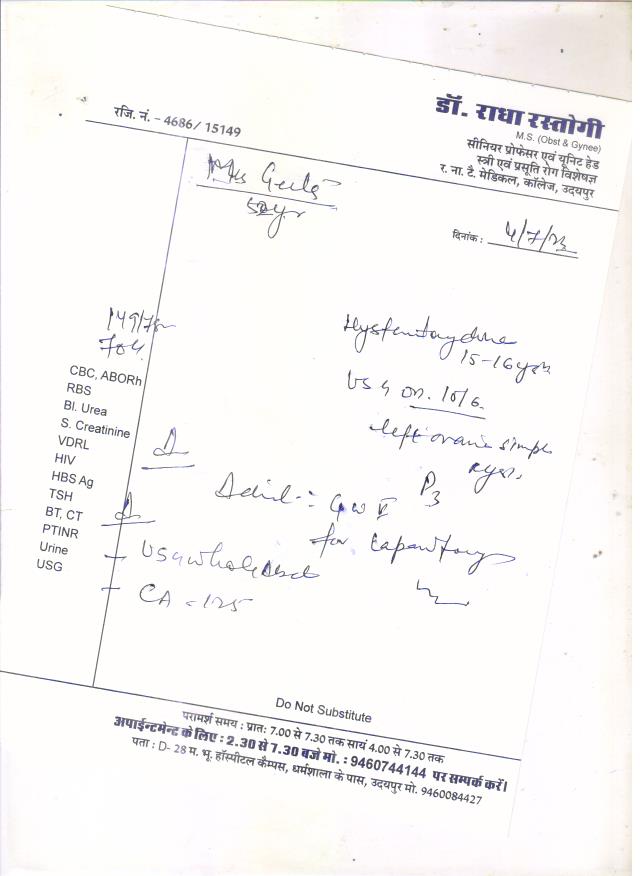 रजि. नं. - 4686/ 15149
डॉ. राधा रस्तोगी
M.S. (Obst & Gynee)
सीनियर प्रोफेसर एवं यूनिट हेड
स्त्री एवं प्रसूति रोग विशेषज्ञ
र. ना. टै. मेडिकल, कॉलेज, उदयपुर
Mrs Geeta
52yr
दिनांक : 4/7/23
15-16yrs
USG on. 10/6.
left ovarian simple
cyst.
P3
for Laparotomy
CBC, ABORh
RBS
Bl. Urea
S. Creatinine
VDRL
HIV
HBS Ag
TSH
BT, CT
PTINR
Urine
USG
USG whole Abd
CA - 125
Do Not Substitute
परामर्श समय : प्रात: 7.00 से 7.30 तक सायं 4.00 से 7.30 तक
अपाईन्टमेन्ट के लिए : 2.30 से 7.30 बजे मो. : 9460744144 पर सम्पर्क करें।
पता : D- 28 म. भू. हॉस्पीटल कैम्पस, धर्मशाला के पास, उदयपुर मो. 9460084427